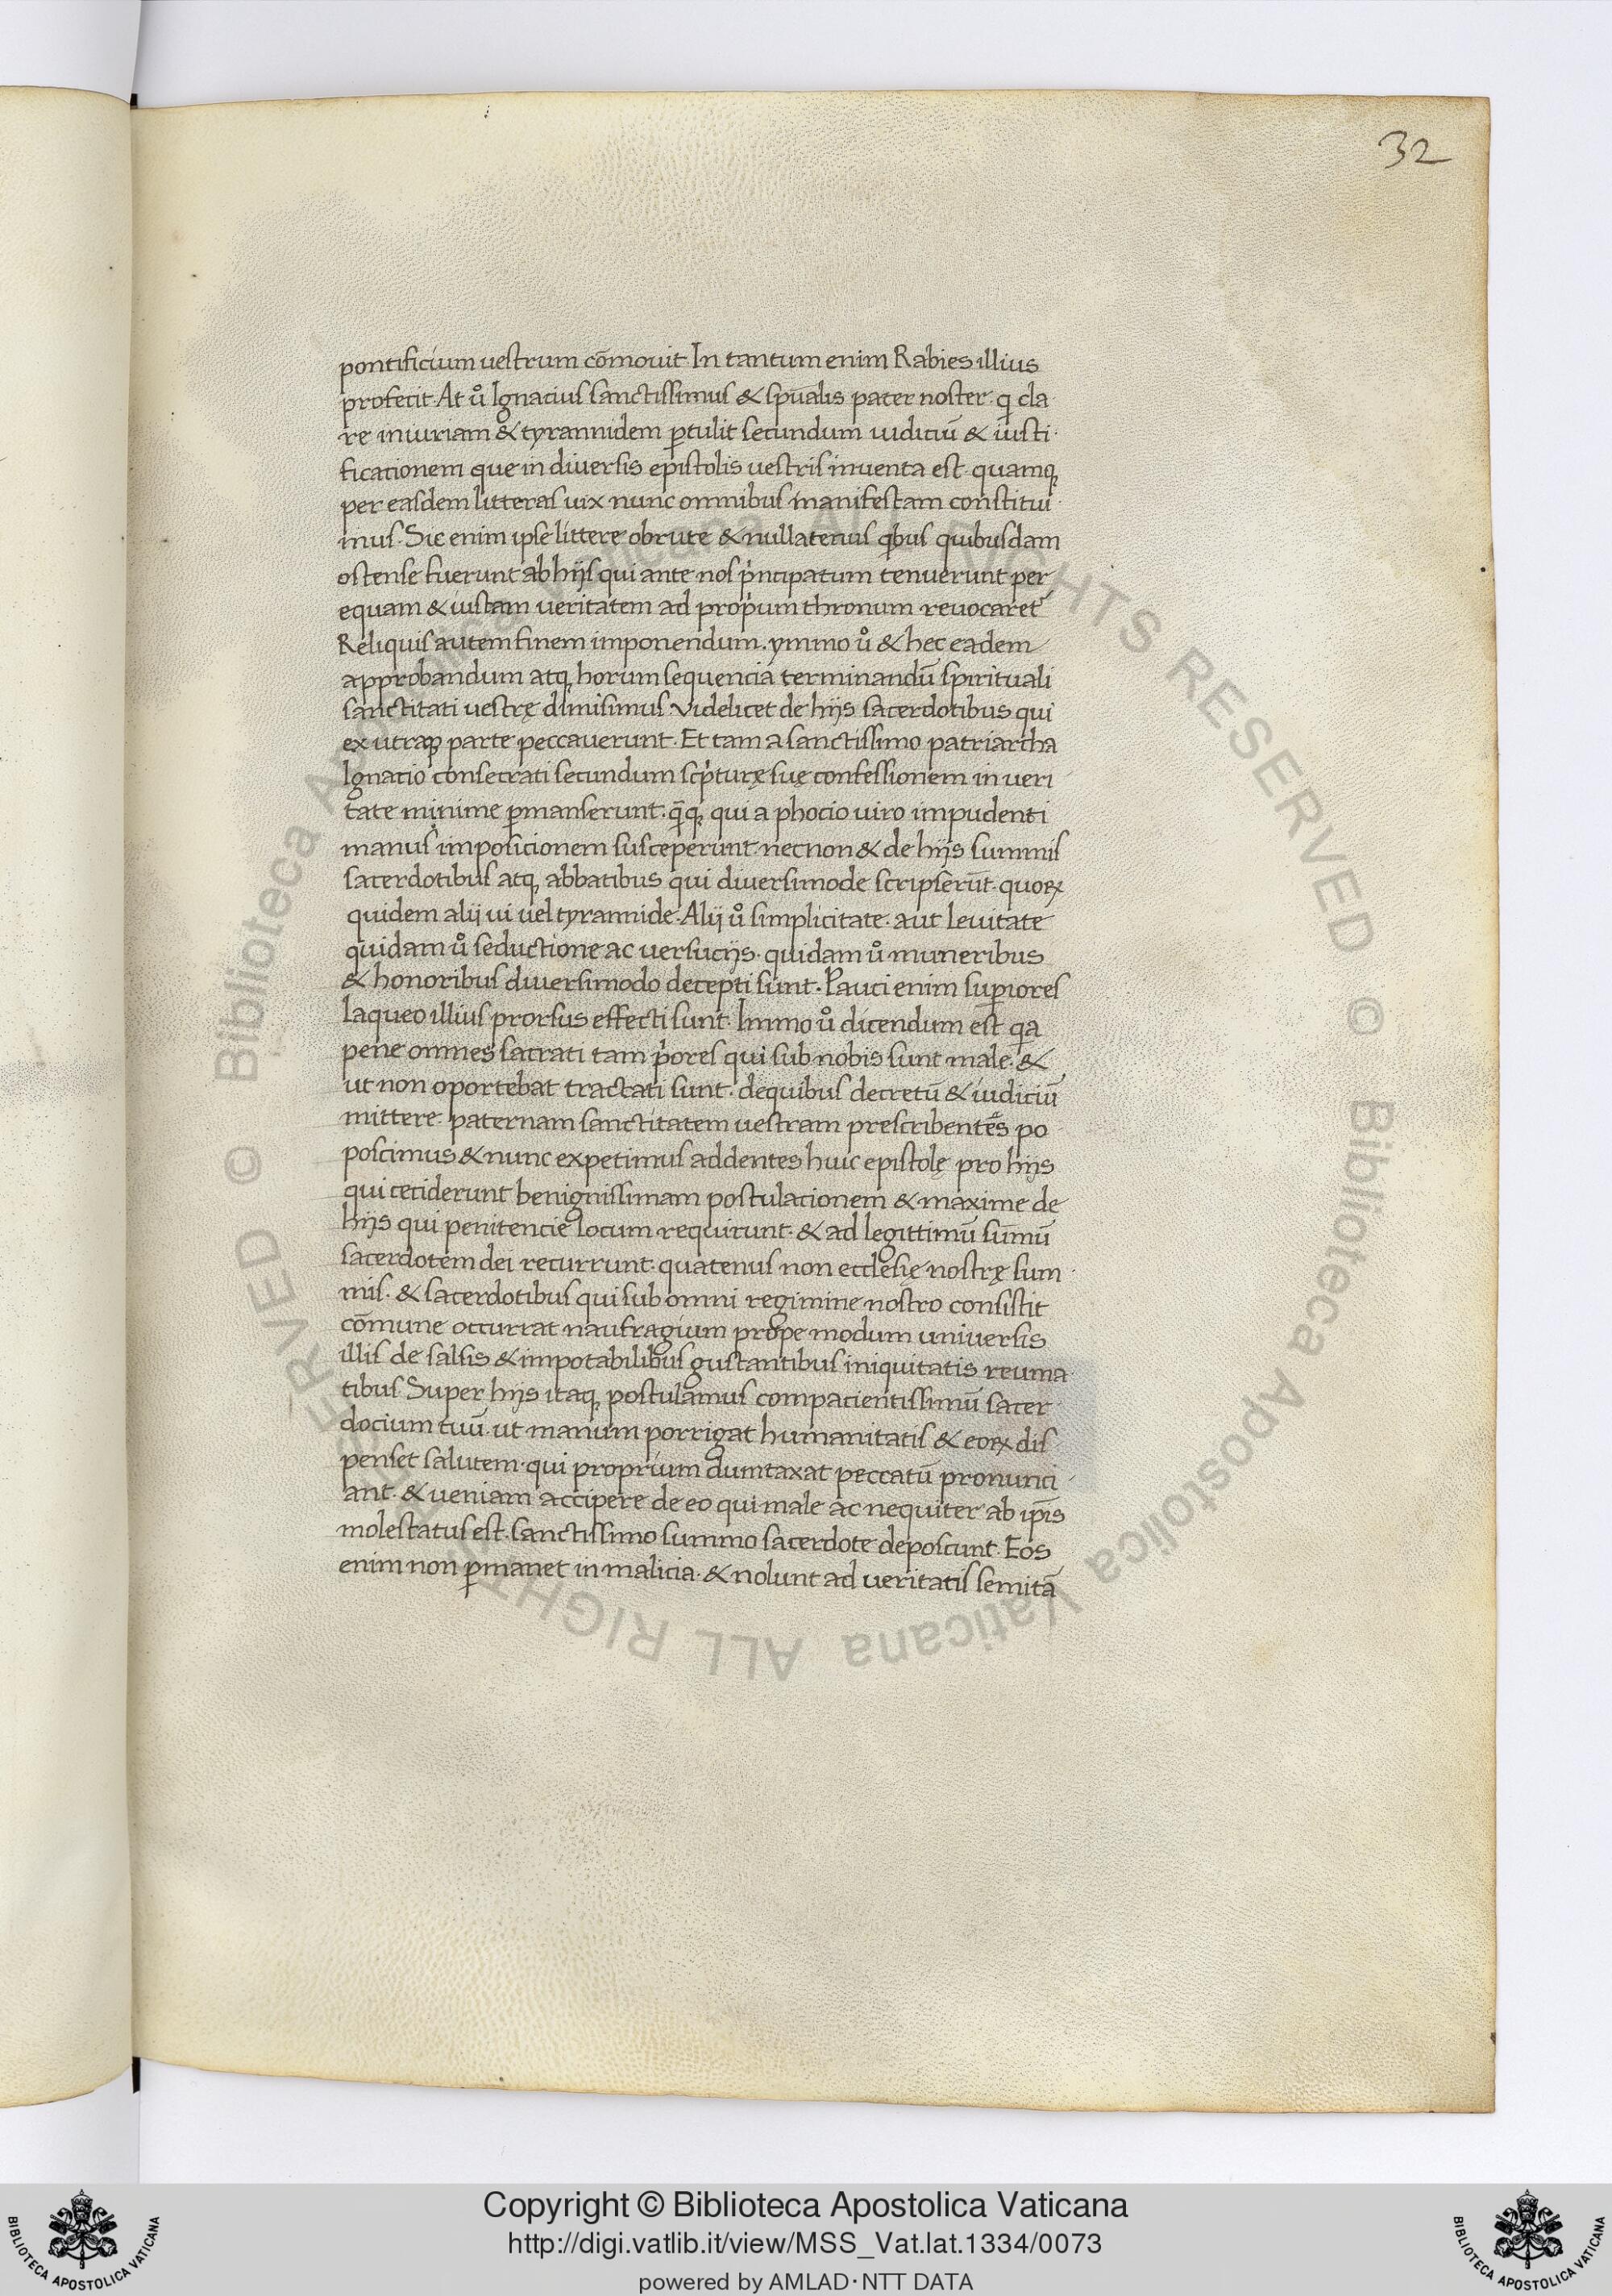 32
pontificium vestrum cōmouit. In tantum enim Rabies illius
profecit. At ů Ignacius sanctissimus & spūalis pater noster. q cla
re iniuriam & tyrannidem ꝑtulit secundum iudiciū & iusti
ficationem que in diuersis epistolis vestris inuenta est. quamqꝫ
per easdem litteras vix nunc omnibus manifestam constitui
mus. Sic enim ipse littere obrute & nullatenus qbus quibusdam
ostense fuerunt ab hijs qui ante nos pͥncipatum tenuerunt per
equam & iustam ueritatem ad propͥum thronum reuocaret᷑
Reliquis autem finem imponendum. ymmo ů & hec eadem
approbandum atqꝫ horum sequencia terminandū spirituali
sanctitati vestrę dimisimus. Videlicet de hijs sacerdotibus qui
ex utraqꝫ parte peccauerunt. Et tam a sanctissimo patriarcha
Ignatio consecrati secundum scpͥturę suę confessionem in veri
tate minime ꝑmanserunt. q̄qꝫ qui a phocio uiro impudenti
manus imposicionem susceperunt necnon & de hijs summis
sacerdotibus atqꝫ abbatibus qui diuersimode scripserūt. quoꝝ
quidem alij ui uel tyrannide. Alij ů simplicitate. aut leuitate
quidam ů seductione ac versucijs. quidam ů muneribus
& honoribus diuersimodo decepti sunt. Pauci enim suꝑiores
laqueo illius prorsus effecti sunt. Immo ů dicendum est qa
pene omnes sacrati tam pͥores qui sub nobis sunt male. &
ut non oportebat tractati sunt. de quibus decretū & iudiciū
mittere. paternam sanctitatem uestram prescribentēs po
poscimus & nunc expetimus addentes huic epistolę pro hijs
qui ceciderunt benignissimam postulacionem & maxime de
hijs qui penitencie locum requirunt. & ad legittimū sūmū
sacerdotem dei recurrunt. quatenus non ecclesię nostrę sum
mis. & sacerdotibus qui sub omni regimine nostro consistit
cōmune occurrat naufragium prope modum universis
illis de salsis & impotabilibus gustantibus iniquitatis reuma
tibus Super hijs itaqꝫ postulamus compacientissimū sacer
docium tuū. ut manum porrigat humanitatis & eoꝝ dis
penset salutem. qui proprium dumtaxat peccatū pronunci
ant. & ueniam accipere de eo qui male ac nequiter ab ip̄is
molestatus est. sanctissimo summo sacerdote deposcunt. Eos
enim non ꝑmanet in malicia. & nolunt ad veritatis semitā
© Biblioteca Apostolica Vaticana ALL RIGHTS RESERVED © Biblioteca Apostolica Vaticana ALL RIGHTS RESERVED
Copyright © Biblioteca Apostolica Vaticana
http://digi.vatlib.it/view/MSS_Vat.lat.1334/0073
powered by AMLAD·NTT DATA
BIBLIOTECA APOSTOLICA VATICANA
BIBLIOTECA APOSTOLICA VATICANA